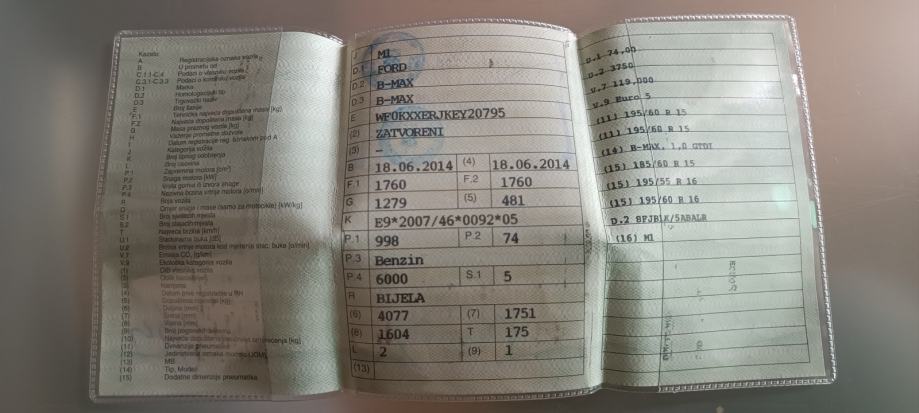 Kazalo:
A Registracijska oznaka vozila
B U prometu od
C.1.1-C.4 Podaci o vlasniku vozila
C.3.1-C.3.3 Podaci o korisniku vozila
D.1 Marka
D.2 Homologacijski tip
D.3 Trgovački naziv
E Broj šasije
F.1 Tehnička najveća dopuštena masa [kg]
F.2 Najveća dopuštena masa [kg]
G Masa praznog vozila [kg]
H Važenje prometne dozvole
I Datum registracije
J Kategorija vozila
K Broj tipnog odobrenja
L Broj osovina
P.1 Zapremina motora [cm³]
P.2 Snaga motora [kW]
P.3 Vrsta goriva ili izvora snage
P.4 Nazivna brzina vrtnje motora [o/min]
R Boja vozila
Q Omjer snage i mase (samo za motocikle) [kW/kg]
S.1 Broj sjedećih mjesta
S.2 Broj stajaćih mjesta
T Najveća brzina [km/h]
U.1 Stacionarna buka [dB]
V.7 Emisija CO₂ [g/km]
V.9 Ekološka kategorija vozila
(1) OIB vlasnika vozila
(3) Namjena
(4) Datum prve registracije u RH
(6) Duljina [mm]
(7) Širina [mm]
(8) Visina [mm]
(9) Broj pogonskih osovina
(11) Dimenzije pneumatika
(13) MB
(14) Tip, Model
(15) Dodatne dimenzije pneumatika
J M1
D.1 FORD
D.2 B-MAX
D.3 B-MAX
E WF0KXXERJKEY20795
(2) ZATVORENI
(3) –
B 18.06.2014 (4) 18.06.2014
F.1 1760 F.2 1760
G 1279 (5) 481
K E9*2007/46*0092*05
P.1 998 P.2 74
P.3 Benzin
P.4 6000 S.1 5
R BIJELA
(6) 4077 (7) 1751
(8) 1604 T 175
L 2 (9) 1
(13)
U.1 74,00
U.2 3750
V.7 119,000
V.9 Euro 5
(11) 195/60 R 15
(11) 195/60 R 15
(14) B-MAX, 1,0 GTDI
(15) 185/60 R 15
(15) 195/55 R 16
(15) 195/60 R 16
(16) M1